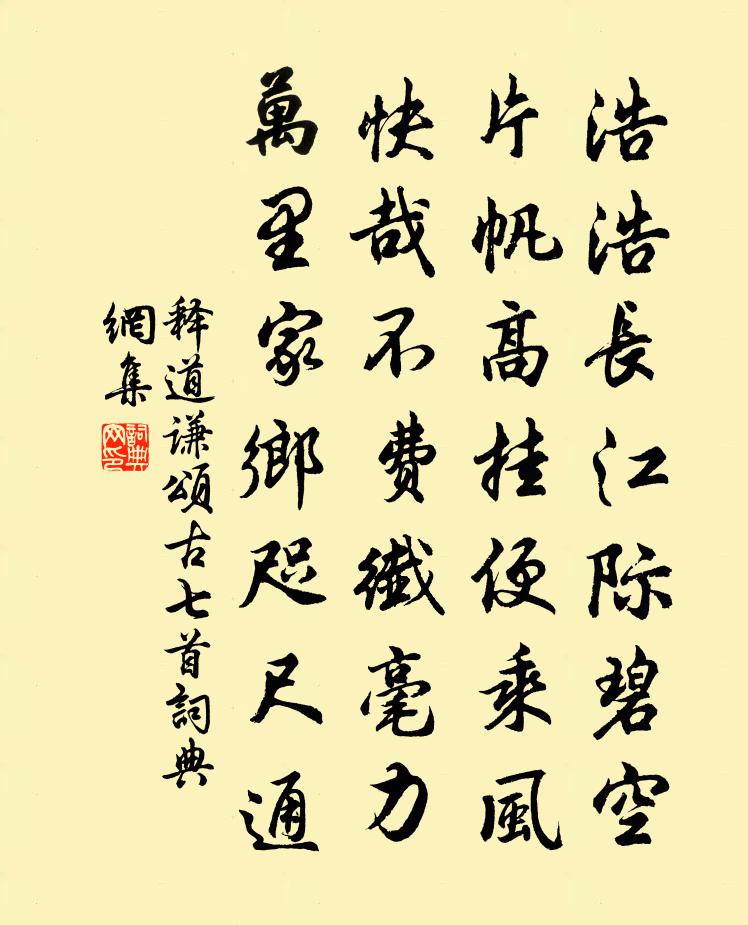 浩浩長江际碧空
片帆高挂便乘風
快哉不费纖毫力
萬里家鄉咫尺通
释道谦頌古七首詞典
網集
詞典
网印